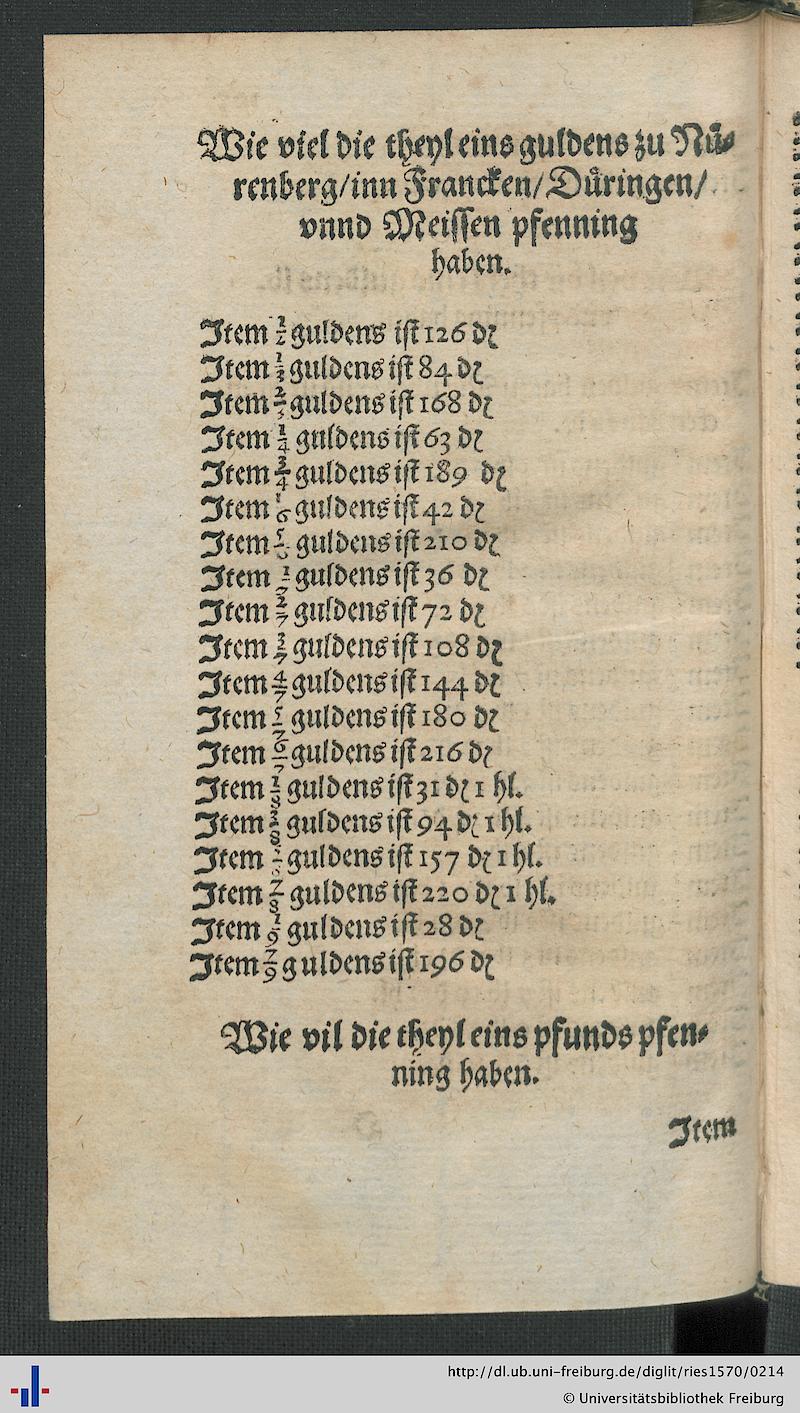 Wie viel die theyl eins guldens zu Nü⸗
renberg/inn Francken/Düringen/
vnnd Meissen pfenning
haben.
Item 1/2 guldens ist 126 ₰
Item 1/3 guldens ist 84 ₰
Item 2/3 guldens ist 168 ₰
Item 1/4 guldens ist 63 ₰
Item 3/4 guldens ist 189 ₰
Item 1/6 guldens ist 42 ₰
Item 5/6 guldens ist 210 ₰
Item 1/7 guldens ist 36 ₰
Item 2/7 guldens ist 72 ₰
Item 3/7 guldens ist 108 ₰
Item 4/7 guldens ist 144 ₰
Item 5/7 guldens ist 180 ₰
Item 6/7 guldens ist 216 ₰
Item 1/8 guldens ist 31 ₰ 1 hl.
Item 3/8 guldens ist 94 ₰ 1 hl.
Item 5/8 guldens ist 157 ₰ 1 hl.
Item 7/8 guldens ist 220 ₰ 1 hl.
Item 1/9 guldens ist 28 ₰
Item 7/9 guldens ist 196 ₰
Wie vil die theyl eins pfunds pfen⸗
ning haben.
Item
http://dl.ub.uni-freiburg.de/diglit/ries1570/0214
© Universitätsbibliothek Freiburg